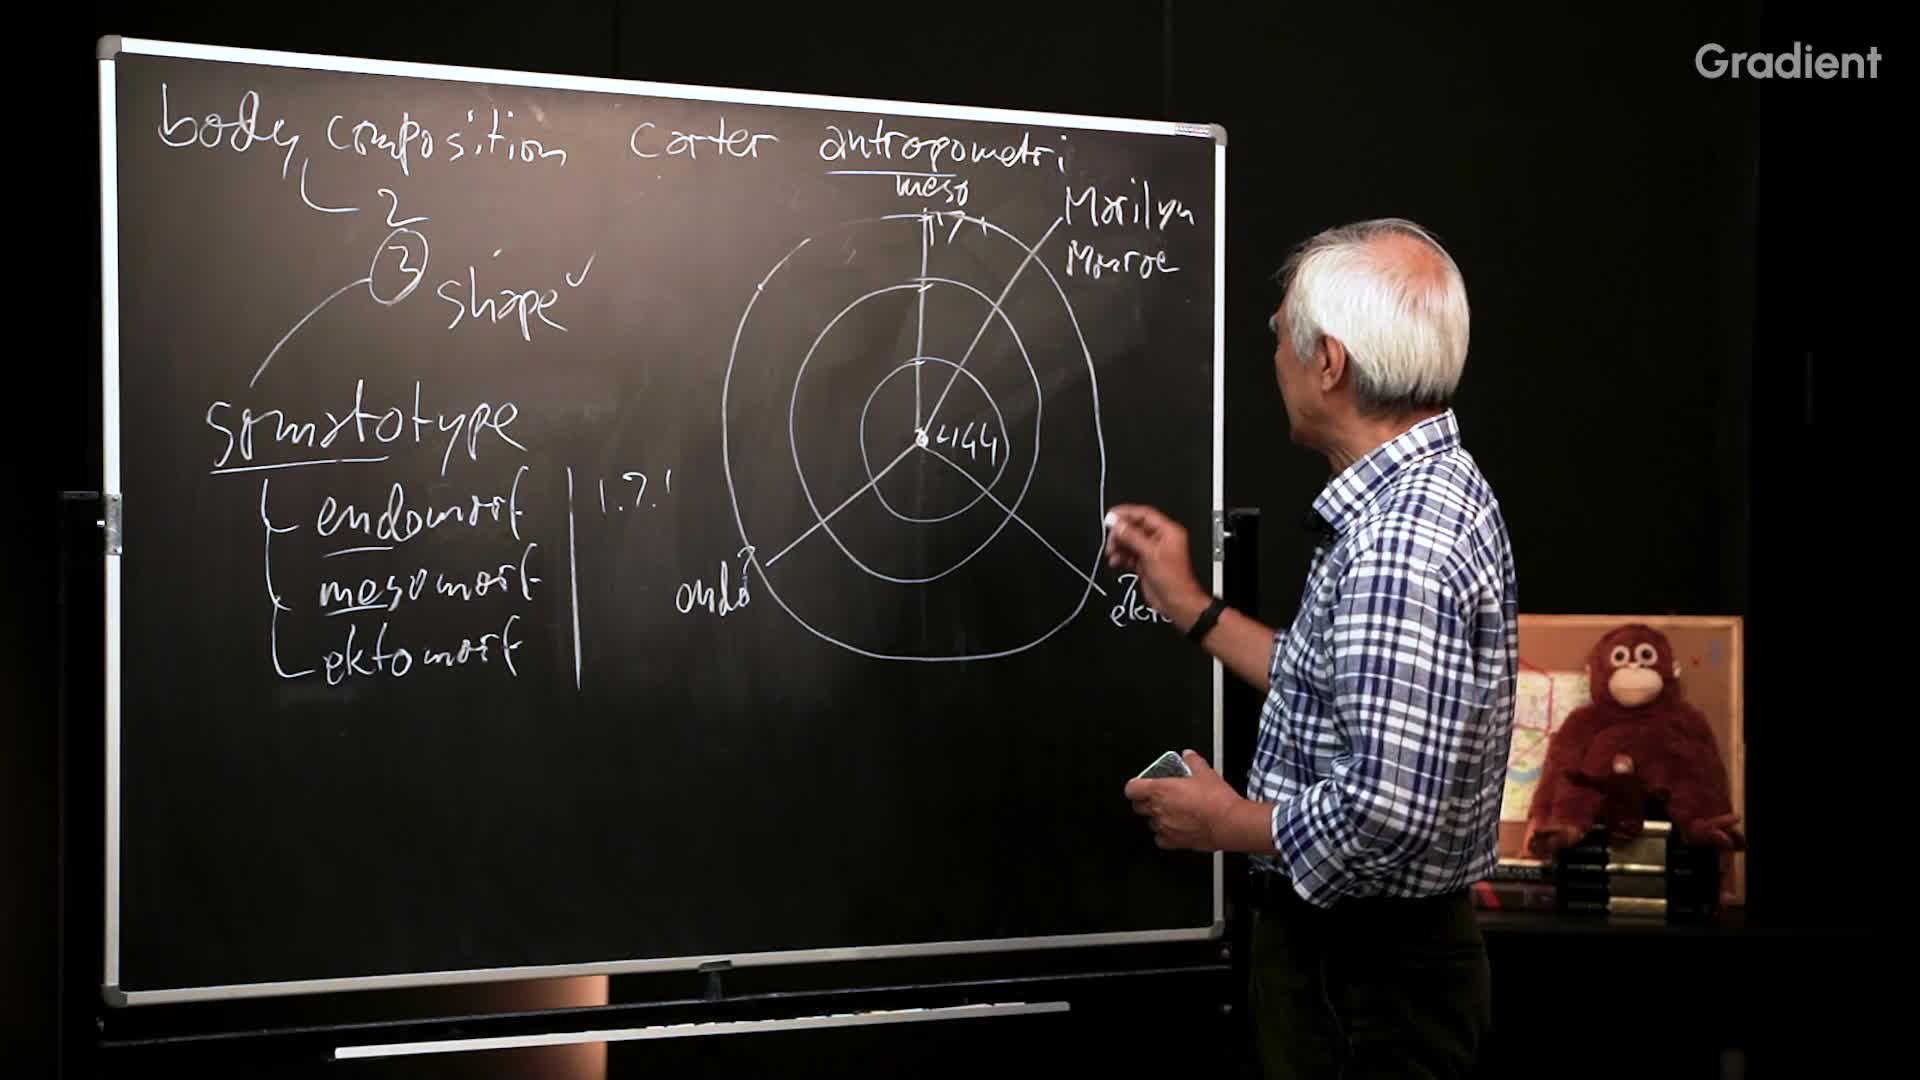 Gradient
body composition carter antropometri
2
3 shape ✓
somatotype
endomorf
mesomorf
ektomorf
1.7.1
meso
171
Marilyn
Monroe
444
endo
ekto